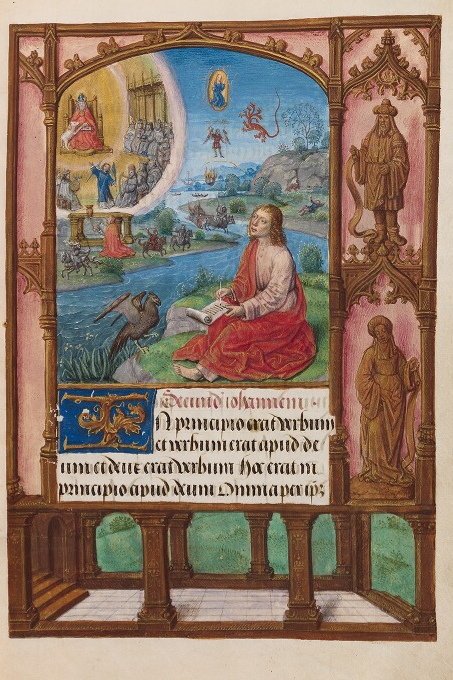 Secundū iohannem
IN principio erat verbum
et verbum erat apud de
um et deus erat verbum Hoc erat in
principio apud deum Omnia per